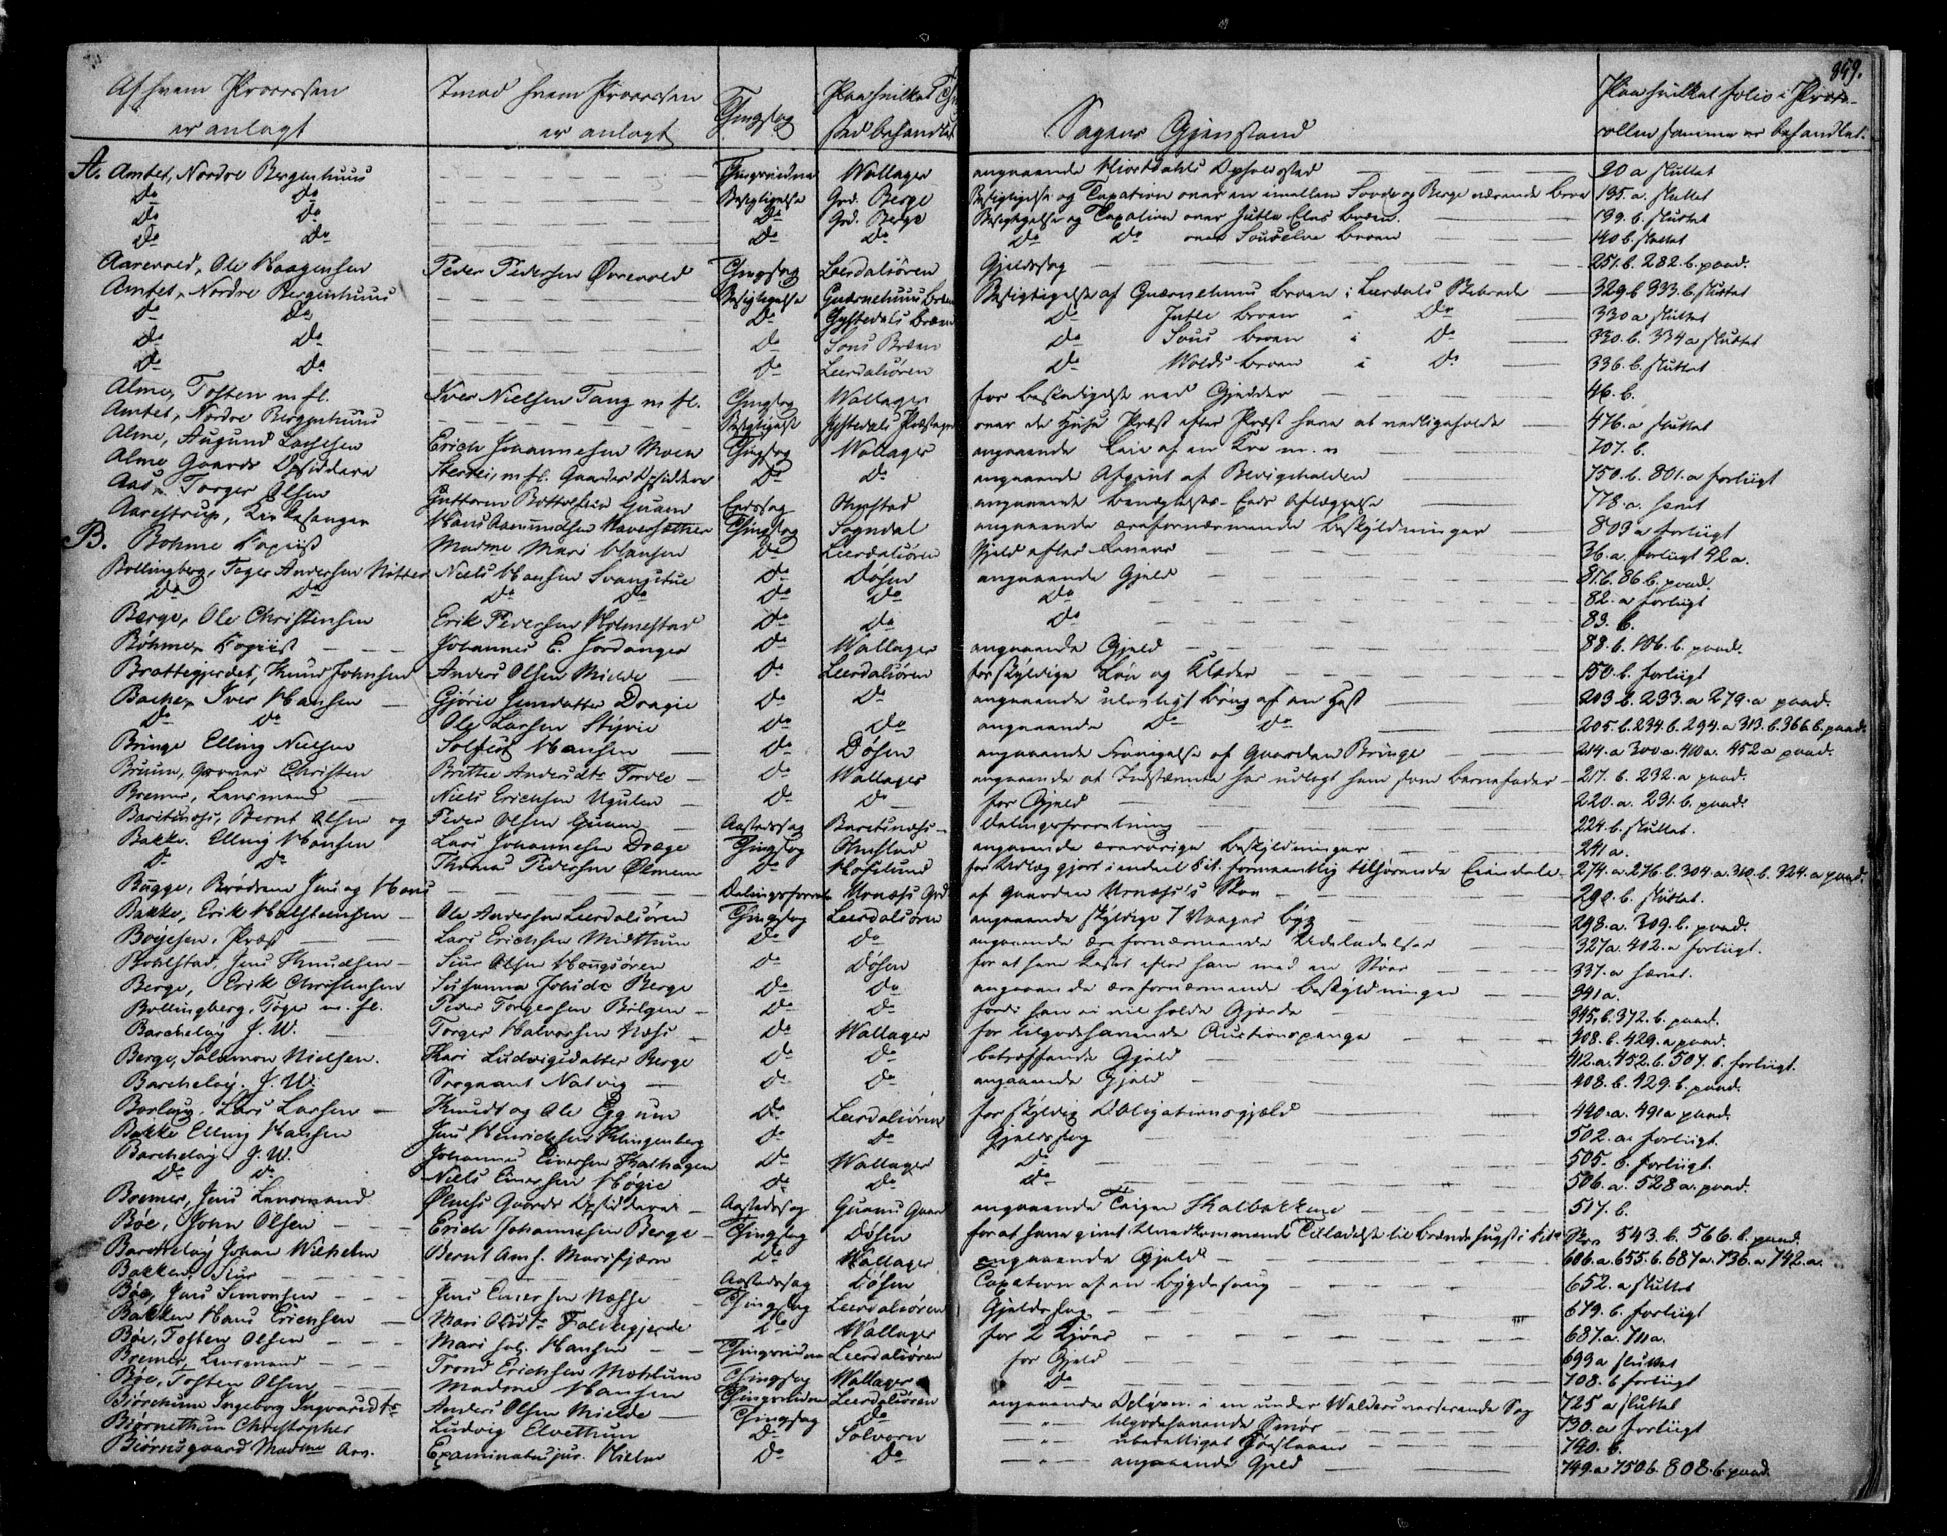 859.
Af hvem Processen er anlagt | Imod hvem Processen er anlagt | Thingslag | Paa hvilket Thingsted behandlet | Sagens Gjenstand | Paa hvilket folio i Protocollen samme er behandlet.
A. Amtet, Nordre Bergenhuus | Thingsvidne | Wallager | angaaende Hiortdahls Opholdsted | 20 a sluttet
Do Do | Besigtigelse | Grd. Berge | Besigtigelse og Taxation over en imellem Sovde og Berge værende Broe | 135. a. sluttet
Do Do | Do | Grd. Berge | Besigtigelse og Taxation over Jutle Elvs Broen. | 139. b. sluttet
Do Do | Do | Do | Do Do over Souselve broen | 140 b. sluttet
Aarevold, Ole Haagensen | Peder Pedersen Ørrevold | Thingslag | Leerdalsören | Gjeldssag | 251. b. 282. b. paad.
Amtet, Nordre Bergenhuus | Besigtigelse | Qværnehuus Broen | Besigtigelse af Qværnehuus broen i Leerdals Bebrede | 329 b 333. b. sluttet
Do Do | Do | Jystedals Broen | Do Jutle broen i Do | 330 a sluttet
Do Do | Do | Sous Broen | Do Sous broen i Do | 330. b. 334 a sluttet
Do Do | Do | Leerdalsören | Do Wolds broen i Do | 336. b. sluttet
Alme, Tosten m fl. | Iver Nielsen Tang m fl. | Thingslag | Wallager | for beskadigelse ved Gjedder | 46. b.
Amtet, Nordre Bergenhuus | Besigtigelse | Jystedals Præstegrd | over de Huse Præst efter Præst have at vedligeholde | 476. a sluttet
Alme, Augund Larsen | Erich Johannesen Moen | Thingslag | Wallager | angaaende Leie af en Koe m. v | 707. b.
Alme Gaards Opsiddere | m. fl. Gaardes Opsiddere | Do | Do | angaaende Afgivt af Bevigtholden | 750. b. 801. a forliigt
Aas, Torger Olsen | Guttorm Bottolfsen Quam | Eedssag | Ohnstad | angaaende benægtelses-Eeds Aflæggelse | 778. a. hævet
Aarestrup, Kirkesanger | Hans Aamundsen Haversætter | Thingslag | Sogndal | angaaende ærefornærmende beskyldninger | 803 a forliigt
B. Bohme Copiist | Madme Mari Hansen | Do | Leerdalsören | Gjeld efter | 36. a. forliigt 42 a.
Bollingberg, Foger Andersen Ritter | Niels Hansen Svangstue | Do | Døsen | angaaende Gjeld | 81. b. 86 b. paad.
Do Do | Do Do | Do | Do | Do | 82. a forliigt
Berge, Ole Christensen | Erik Pedersen Holmestad | Do | Do | Do | 83. b.
Böhme, Copiist | Johannes E. Jordanger | Do | Wallager | angaaende Gjeld | 88. b. 106. b. paad.
Brattegjerdet, Knud Johnsen | Anders Olsen Mielde | Do | Leerdalsören | for skyldige Løn og Klæder | 150. b. forliigt
Bache, Iver Hansen | Gjörie Jensdatter Drægie | Do | Do | angaaende ulovligt brug af en Hest | 203. b. 233. a 279. a paad.
Do Do | Ole Larsen Styvie | Do | Do | angaaende Do Do | 205. b. 234. b. 294. a 313. b. 366 b. paad.
Bringe Elling Nielsen | Solfest Hansen | Do | Døsen | angaaende Fravigelse af Gaarden Bringe | 214. a 300 a. 410 a. 452 a paad.
Bruun, Christen | Brithe Andersdtr Tordle | Do | Wallager | angaaende at Indstævnte har udlagt ham som barnefader | 217. b. 232. a paad.
Bremer, Lensmand | Niels Erichsen Ugulen | Do | Do | for Gjeld | 220. a. 231. b. paad.
Baretsnæss, Bernt Olsen og | Peder Olsen Quam | Aastedssag | Baretsnæss | Delingsforretning | 224. b. sluttet.
Bakke. Elling Hansen | Lars Johannesen Dræge | Thingslag | Ohnstad | angaaende ærerørige beskyldninger | 241 a.
Do Do | Thomas Pedersen Ølmeim | Do | Hofslund | for Udlæg gjort i endeel Cit: formeentlig tilhørende Eiendele | 274. a 276. b. 304. a. 310. b. 324. a paad.
Bugge, Brødrene Jens og Hans | Delingsforretn | Urnæss Grd | af Gaarden Urnæss's Skov | 290. b. sluttet.
Bakke, Erik Halsteensen | Ole Andersen Leerdalsören | Thingslag | Leerdalsören | angaaende skyldige 7 Vaager byg | 298. a. 309. b. paad.
Boyesen, Præst | Lars Erichsen Midthun | Do | Do | angaaende ærefornærmende Udeladelser | 327 a. 402. a forliigt.
Bohlstad, Jens Knudsen | Siur Olsen Haugsören | Do | Døsen | for at have kastet efter ham med en Støer | 337. a hævet.
Berge, Erik Christensen | Susanna Johnsdr Berge | Do | Do | angaaende ærefornærmende beskyldninger | 341 a.
Bollingberg, Foger m. fl. | Peder Torgersen Bolgen | Do | Do | fordi han ei vil holde Gjerde | 345. b. 372. b. paad.
Barcheloy J. W. | Torger Halvorsen Næss | Do | Wallager | for tilgodehavende Auctionspenge | 408. b. 429. a paad.
Berge, Salamon Nielsen. | Kari Ludvigsdatter Berge | Do | Do | betræffende Gjeld | 412. a. 452. b. 507. b. forliigt.
Barcheloy. J. W. | Sergeant Natvig | Do | Do | angaaende Gjeld | 408. b. 429. b. paad.
Borlaug, Lars Larsen | Knudt og Ole Eggum | Do | Leerdalsören | for skyldig Obligationsgjæld | 440. a. 491 a paad.
Bakke Elling Hansen | Jens Henrichsen Klingenberg | Do | Do | Gjeldssag | 502. a. forliigt.
Barcheloy J. W. | Johannes Einersen Kalhagen | Do | Wallager | Do | 505. b. forliigt.
Do Do | Niels Einersen Högie | Do | Do | Do | 506. a. 528 a. paad.
Bremer, Jens Lensmand | Ølnæss Gaards Opsiddere | Aastedssag | Quams Gaard | angaaende Teigen Skalbakkene | 517. b.
Bøe, John Olsen | Erich Johannesen Berge | Thingslag | Døsen | for at have givet Uvedkommende Tilladelse til Brændehugst i Cits Skov | 543. b. 566. b. paad.
Barcheloy Johan Wilhelm | Bernt Anf. Marifjæren | Do | Wallager | angaaende Gjeld | 606. a. 655. b. 687 a. 736. a 742. a.
Bakken, Siur | Aastedssag | Døsen | Taxation af en bygdesaug | 652. a sluttet
Bøe, Jens Simonsen | Jens Einersen Næsse | Thingslag | Leerdalsören | Gjeldssag | 679. b. forliigt
Bakken Hans Erichsen | Mari Olsdtr Falkegjerde | Do | Wallager | for 2 Kjöer | 687. a. 711 a.
Bøe, Tosten Olsen | Mari sal. Hansen | Thingsvidne | Leerdalsören | for Gjeld | 699 a sluttet
Bremer, Lensmand | Trond Erichsen Mohlum | Thingslag | Wallager | Do | 708. b forliigt
Bøe, Tosten Olsen | Madme Hansen | Thingsvidne | Leerdalsören | angaaende i en under Walders verserende Sag | 725 a sluttet
Biörchum Ingeborg Ingvarsdtr | Anders Olsen Mielde | Thingslag | Do | — " — tilgodehavende Smør | 730. a forliigt
Biörnethun Christopher | Ludvig Elvethun | Do | Solvorn | — " — ubetalliget | 740. b.
Biörnsgaard Madme Arv. | Examinatusjur. Hielm | Do | Do | — " — angaaende Gjeld | 749. a 750 b. 808. b. paad.